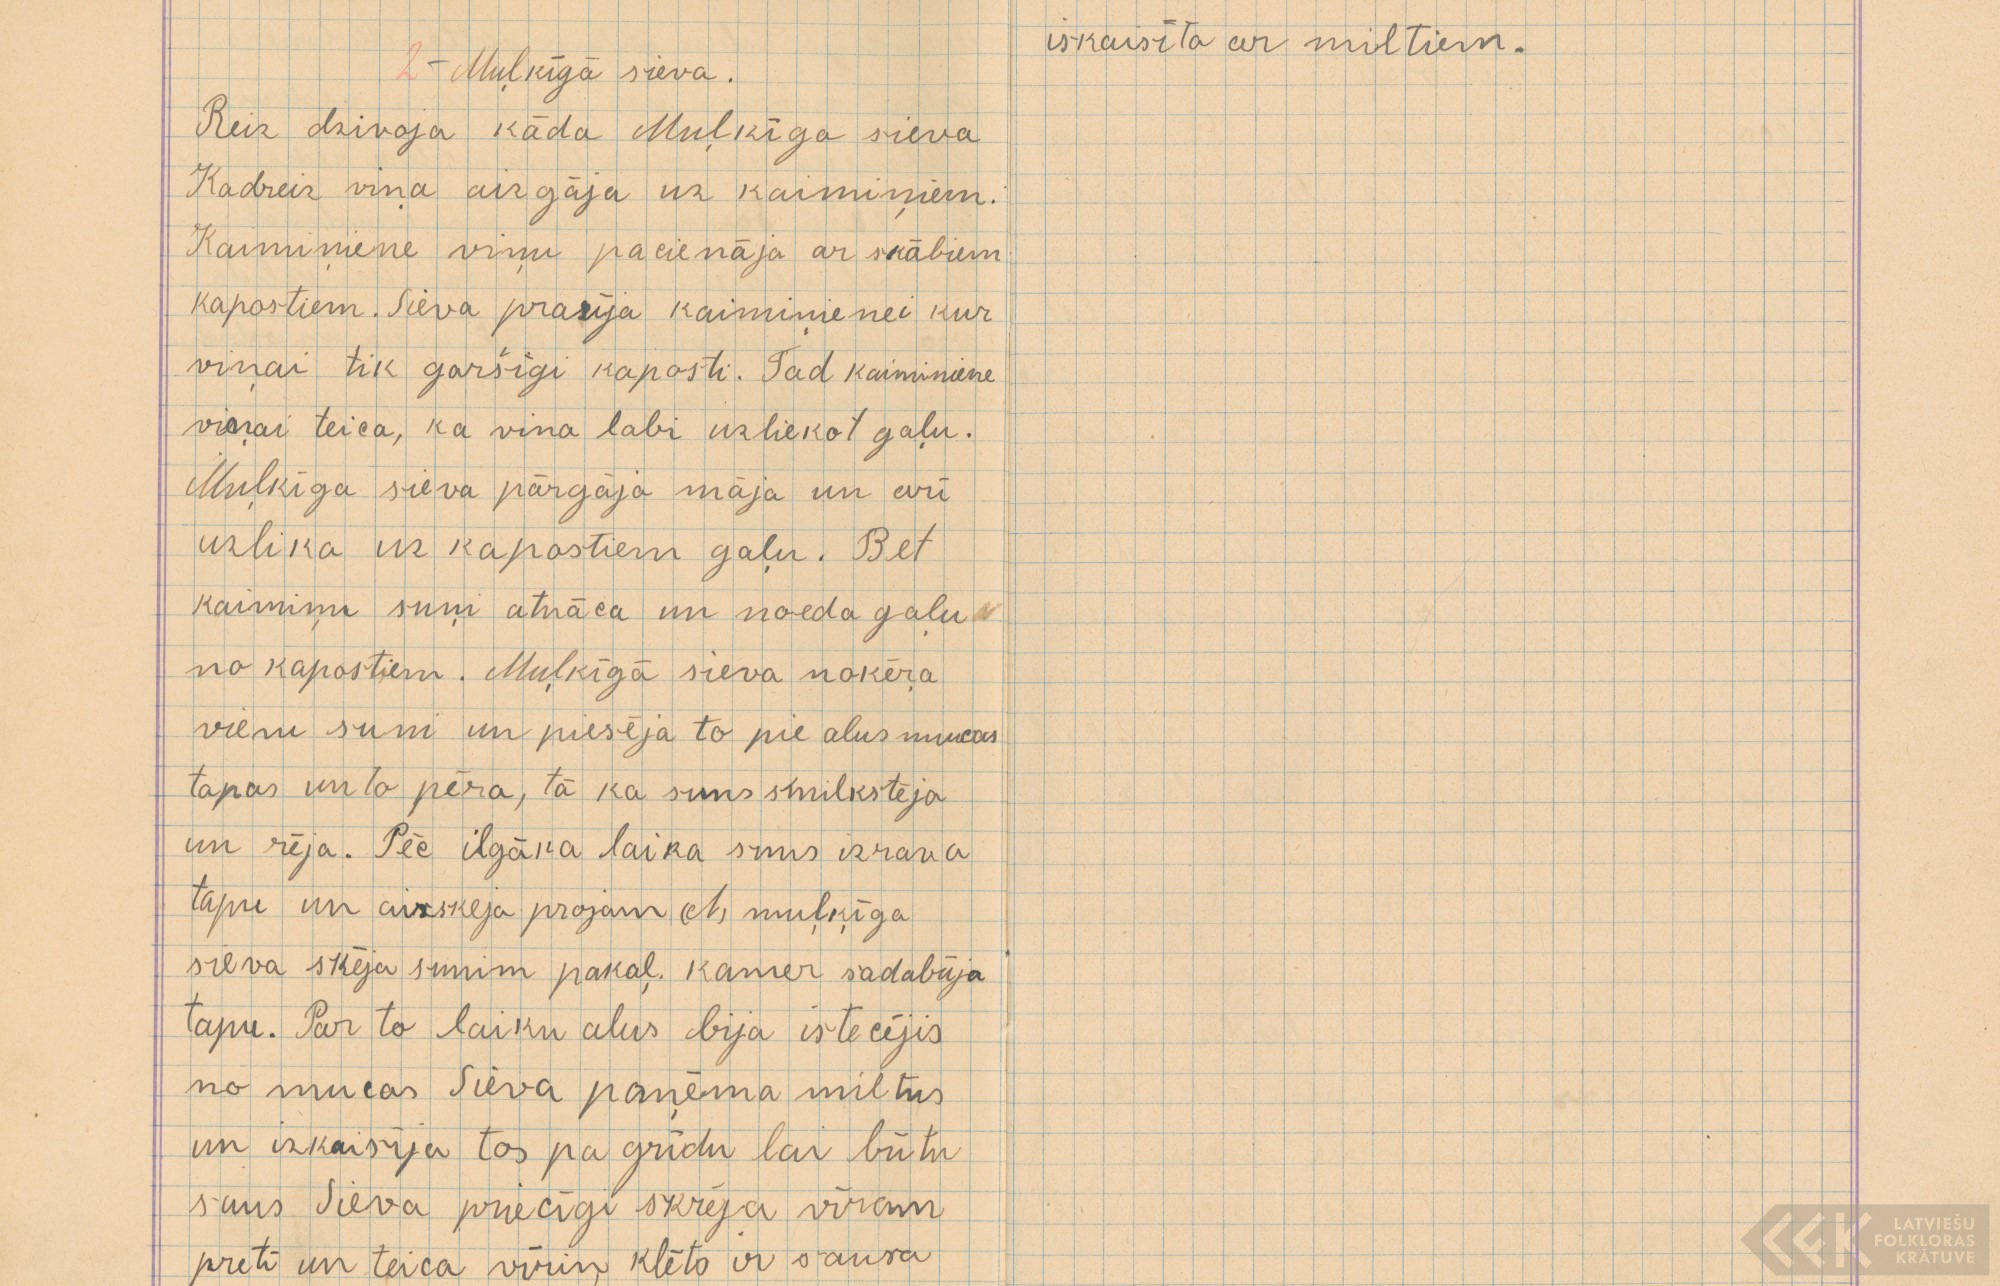 2 - Muļkīgā sieva.
Reiz dzivoja kāda Muļkīga sieva
Kadreiz viņa aizgāja uz kaimiņiem.
Kaimiņiene viņu pacienāja ar skābiem
kapostiem. Sieva prasīja kaimiņienei kur
viņai tik garšīgi kaposti. Tad kaiminiene
viņai teica, ka vina labi uzliekot gaļu.
Muļkīga sieva pārgāja māja un arī
uzlika uz kapostiem gaļu. Bet
kaimiņu suņi atnāca un noeda gaļu
no kapostiem. Muļkīgā sieva noķēra
vienu suni un piesēja to pie alus mucas
tapas un to pēra, tā ka suns smilkstēja
un rēja. Pēc ilgāka laika suns izrava
tapu un aizskeja projam (et) muļķīga
sieva skēja sunim pakaļ. kamer sadabūja
tapu. Par to laiku alus bija istecējis
no mucas Sieva paņēma miltus
un izkaisīja tos pa grīdu lai būtu
saus Sieva priecīgi skrēja vīram
preti un teica vīrin, klēts ir sausa
iskaisīta ar miltiem.
LATVIEŠU
FOLKLORAS
KRĀTUVE